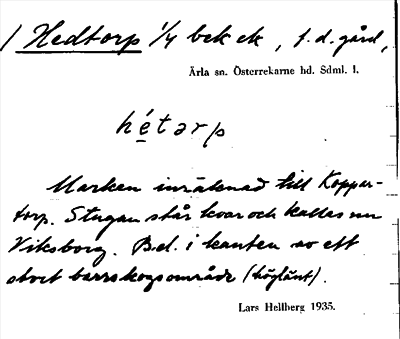 / Hedtorp 1/4 bek ek, f.d. gård,
Ärla sn. Österrekarne hd. Sdml. l.
hétərp
Marken inräknad till Koppar-
torp. Stugan står kvar och kallas nu
Viksborg. Bel. i kanten av ett
stort barrskogsområde (höglänt).
Lars Hellberg 1935.